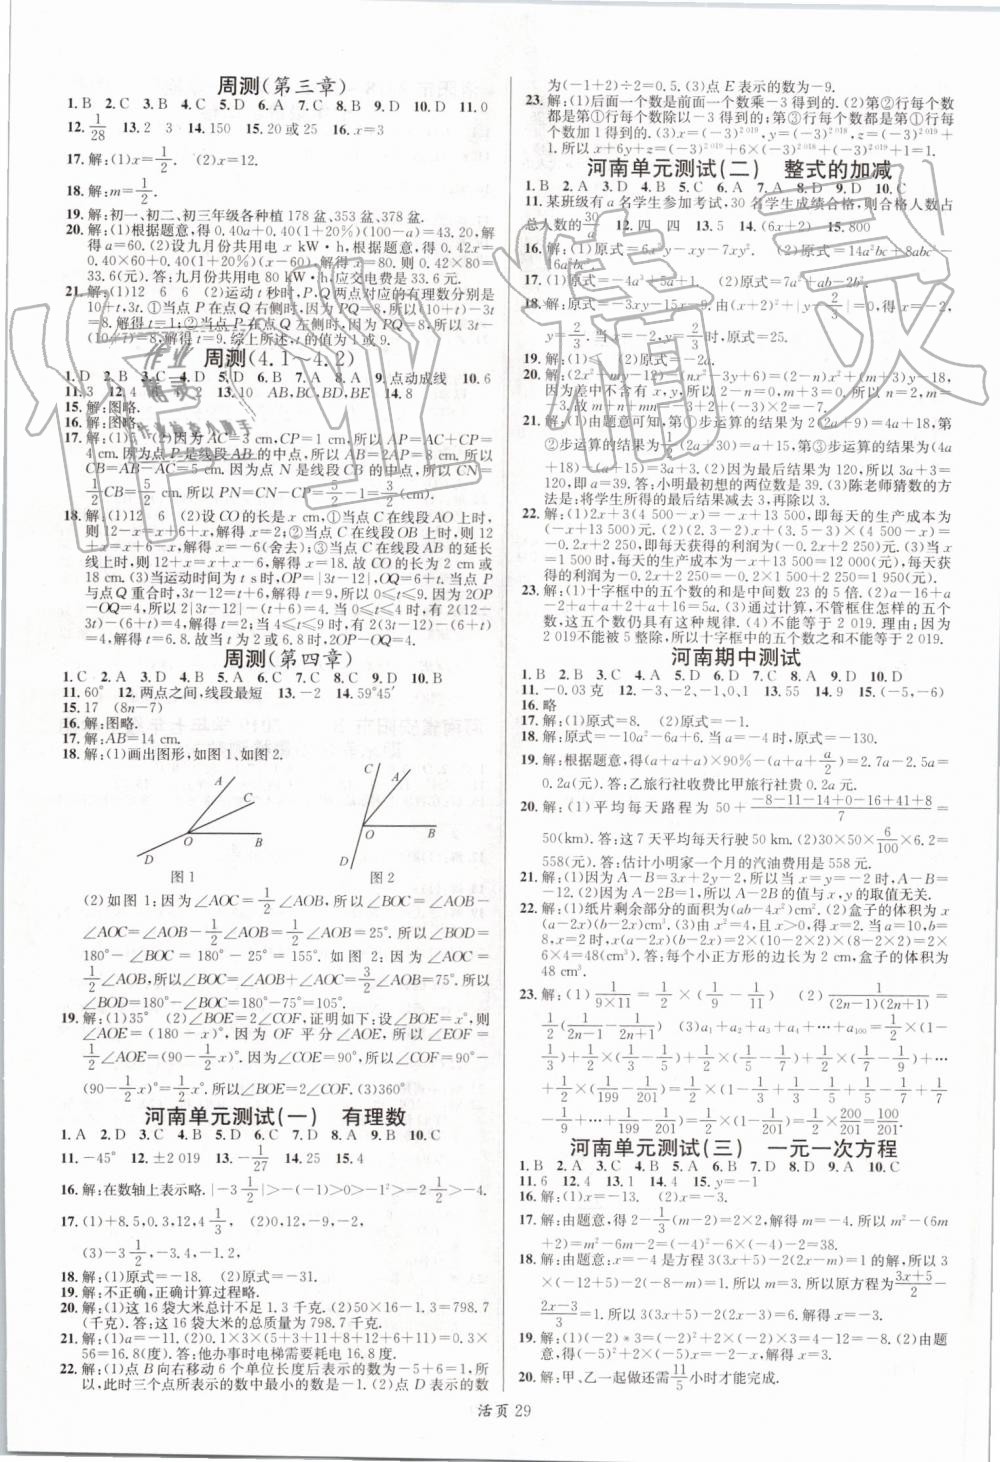 周测(第三章)
1.B 2.C 3.B 4.C 5.D 6.A 7.C 8.B 9.D 10.D 11.0
12.1/28 13.2 3 14.150 15.20或25 16.x=3
17.解:(1)x=1/2. (2)x=12.
18.解:m=1/2.
19.解:初一、初二、初三年级各种植178盆、353盆、378盆.
20.解:(1)根据题意,得0.40a+0.40(1+20%)(100-a)=43.20,解
得a=60.(2)设九月份共用电x kW·h,根据题意,得0.42x=
0.40×60+0.40(1+20%)(x-60).解得x=80.则0.42×80=
33.6(元).答:九月份共用电80 kW·h,应交电费是33.6元.
21.解:(1)12 6 6 (2)运动t秒时,P,Q两点对应的有理数分别是
10+t,3t.①当点P在点Q右侧时,因为PQ=8,所以(10+t)-3t
=8.解得t=1;②当点P在点Q左侧时,因为PQ=8,所以3t-
(10+t)=8.解得t=9.综上所述,t的值为1或9.
周测(4.1～4.2)
1.D 2.B 3.C 4.D 5.D 6.B 7.A 8.A 9.点动成线 10.6
11.3 12.4 13.10 AB,BC,BD,BE 14.8
15.解:图略.
16.解:图略.
17.解: (2)因为AC=3 cm,CP=1 cm,所以AP=AC+CP=
4 cm.因为点P是线段AB的中点,所以AB=2AP=8 cm.所以
CB=AB-AC=5 cm.因为点N是线段CB的中点,所以CN=
1/2CB=5/2 cm.所以PN=CN-CP=3/2(cm).
18.解:(1)12 6 (2)设CO的长是x cm,①当点C在线段AO上时,
则12-x=x+6+x,解得x=2;②当点C在线段OB上时,12
+x=x+6-x,解得x=-6(舍去);③当点C在线段AB的延长
线上时,则12+x=x+x-6,解得x=18.故CO的长为2 cm或
18 cm.(3)当运动时间为t s时,OP=|3t-12|,OQ=6+t.当点P
与点Q重合时,3t-12=6+t,解得t=9,所以0≤t≤9.因为2OP-OQ
=4,所以2|3t-12|-(t+6)=4.当0≤t<4时,有2(12-
3t)-(6+t)=4,解得t=2;当4≤t≤9时,有2(3t-12)-(6+t)=
4,解得t=6.8.故当t为2或6.8时,2OP-OQ=4.
周测(第四章)
1.C 2.D 3.B 4.B 5.D 6.C 7.D 8.A 9.B 10.C
11.60° 12.两点之间,线段最短 13.-2 14.59°45′
15.17 (8n-7)
16.解:图略.
17.解:AB=14 cm.
18.解:(1)画出图形,如图1、如图2.
A C O B D
图1
C A O B D
图2
(2)如图1:因为∠AOC=1/2∠AOB,所以∠BOC=∠AOB
-∠AOC=∠AOB-1/2∠AOB=1/2∠AOB=25°.所以∠BOD=
180°-∠BOC=180°-25°=155°.如图2:因为∠AOC=
1/2∠AOB,所以∠BOC=∠AOB+∠AOC=3/2∠AOB=75°.所以
∠BOD=180°-∠BOC=180°-75°=105°.
19.解:(1)35° (2)∠BOE=2∠COF,证明如下:设∠BOE=x°,则
∠AOE=(180-x)°,因为OF平分∠AOE,所以∠EOF=
1/2∠AOE=(90-1/2x)°.因为∠COE=90°,所以∠COF=90°-
(90-1/2x)°=1/2x°.所以∠BOE=2∠COF.(3)360°
河南单元测试(一) 有理数
1.A 2.D 3.C 4.B 5.D 6.C 7.D 8.A 9.B 10.C
11.-45° 12.±2 019 13.-1/27 14.25 15.4
16.解:在数轴上表示略.|-3 1/2|>-(-1)>0>-1²>-2 1/2>-4.
17.(1)+8.5,0.3,12,4 1/3,
(3)-3 1/2,-3.4,-1.2.
18.解:(1)原式=-18. (2)原式=-31.
19.解:不正确,正确计算过程略.
20.解:(1)这16袋大米总计不足1.3千克.(2)50×16-1.3=798.7
(千克).答:这16袋大米的总质量为798.7千克.
21.解:(1)a=-11.(2)0.1×3×(5+3+11+8+12+6+11)=0.3
×56=16.8(度).答:他办事时电梯需要耗电16.8度.
22.解:(1)点B向右移动6个单位长度后表示的数为-5+6=1,所
以,此时三个点所表示的数中最小的数是-1.(2)点D表示的数
为(-1+2)÷2=0.5.(3)点E表示的数为-9.
23.解:(1)后面一个数是前面一个数乘-3得到的.(2)第②行每个数
都是第①行每个数除以-3得到的;第③行每个数都是第①行
每个数加1得到的.(3)x=(-3)^2 019,y=(-3)^2 018,z=(-3)^2 019+
1.所以x+6y+z=(-3)^2 019+6×(-3)^2 018+(-3)^2 019+1=1.
河南单元测试(二) 整式的加减
1.B 2.A 3.D 4.B 5.C 6.C 7.B 8.D 9.D 10.C
11.某班级有a名学生参加考试,30名学生成绩合格,则合格人数占
总人数的30/a 12.四 四 13.5 14.(6x+2) 15.800
16.解:(1)原式=6x²y-7xy². (2)原式=14a²bc+8abc²-
16a²bc².
17.(1)原式=-4a³+5a²-1. (2)原式=7a²+ab-2b².
18.解:原式=-3xy-15x=9.由(x+2)²+|y-2/3|=0,得x=-2,
y=2/3.当x=-2,y=2/3时,原式=25.
19.解:(1)≤
20.解:(2x²+my-12)-(nx²-3y+6)=(2-n)x²+(m+3)y-18,
因为差中不含有x,y,所以2-n=0,m+3=0.所以n=2,m=
-3.故m+n+mn=-3+2+(-3)×2=-7.
21.解:(1)由题意可知,第①步运算的结果为2(2a+15)=4a+30,第
②步运算的结果为(2a+30)=a+15,第③步运算的结果为(4a
+18)-(a+15)=3a+3.(2)因为最后结果为120,所以3a+3=
120,即a=39.答:小明最初想的两位数是39.(3)陈老师猜数的方
法是:将学生所得的最后结果减去3,再除以3.
22.解:(1)2x+3(4 500-x)=-x+13 500,即每天的生产成本为
(-x+13 500)元.(2)(2.3-2)x+(3.5-3)×(4 500-x)=
-0.2x+2 250,即每天获得的利润为(-0.2x+2 250)元.(3)当x
=1 500时,每天的生产成本=-x+13 500=12 000(元),每天获
得的利润=-0.2x+2 250=-0.2×1 500+2 250=1 950(元).
23.解:(1)十字框中的五个数的和是中间数23的5倍.(2)a-16+a
-2+a+a+2+a+16=5a.(3)通过计算,不管框住怎样的五个
数,这五个数仍具有这种规律.(4)不能等于2 019.理由:因为
2 019不能被5整除,所以十字框中的五个数之和不能等于2 019.
河南期中测试
1.B 2.B 3.C 4.C 5.C 6.D 7.C 8.A 9.D 10.D
11.-0.03克 12.-3、-2、-1、0、1 13.55 14.9 15.(-5,-6)
16.略
17.解:(1)原式=8. (2)原式=1.
18.解:原式=-10a²-6a-3.当a=-4时,原式=-139.
19.解:根据题意,得(a+a+a)×90%-(a+a+a/2)=2.7a-2.5a=
0.2a(元).答:乙旅行社收费比甲旅行社贵0.2a元.
20.解:(1)平均每天路程为50+(-8-11-14+0-16+41+8)/7=
50(km).答:这7天平均每天行驶50 km.(2)30×50×6/100×6.2=
558(元).答:估计小明家一个月的汽油费用是558元.
21.解:(1)因为A-B=3x+2y-2,所以当x=6,y=-15时,A-B=
-12.(2)因为A-2B=1,所以A-2B的值与x,y的取值无关.
22.解:(1)纸片剩余部分的面积为(ab-4x²)cm².(2)盒子的体积为x
(a-2x)(b-2x)cm³.(3)由x²=4,且x>0,得x=2.当a=10,b=
8,x=2时,x(a-2x)(b-2x)=2×(10-2×2)×(8-2×2)=2×
6×4=48(cm³).答:每个小正方形的边长为2 cm,盒子的体积为
48 cm³.
23.解:(1)1/(9×11)=1/2×(1/9-1/11) (2)1/((2n-1)(2n+1))=
1/2(1/(2n-1)-1/(2n+1)) (3)a₁+a₂+a₃+a₄+…+a₁₀₀=1/2×(1-
1/3)+1/2×(1/3-1/5)+1/2×(1/5-1/7)+1/2×(1/7-1/9)+…
+1/2×(1/199-1/201)=1/2×(1-1/3+1/3-1/5+1/5-1/7+1/7-
1/9+…+1/199-1/201)=1/2×(1-1/201)=1/2×200/201=100/201.
河南单元测试(三) 一元一次方程
1.B 2.A 3.C 4.D 5.D 6.B 7.D 8.C 9.D 10.B
11.6 12.4 13.1 14.4 15.y=-1
16.解:(1)x=-13. (2)x=-3.
17.解:由题意,得2-1/3(m-2)=2×2,解得m=-4.所以m²-(6m
+2)=m²-6m-2=(-4)²-6×(-4)-2=38.
18.解:由题意,x=-4是方程3(3x+5)-2(2x-3m)=1的解,所以3
×(-12+5)-2(-8-3m)=1,所以m=3.所以原方程为(3x+5)/2-
(2x-3)/3=1.所以3(3x+5)-2(2x-3)=6.解得x=-3.
19.解:(1)(-2)*3=(-2)²+2×(-2)×3=4-12=-8.(2)由题
意,得(-5)²+2×(-5)x=-2-x.解得x=3.
20.解:甲、乙一起做还需11/5小时才能完成.
活页 29